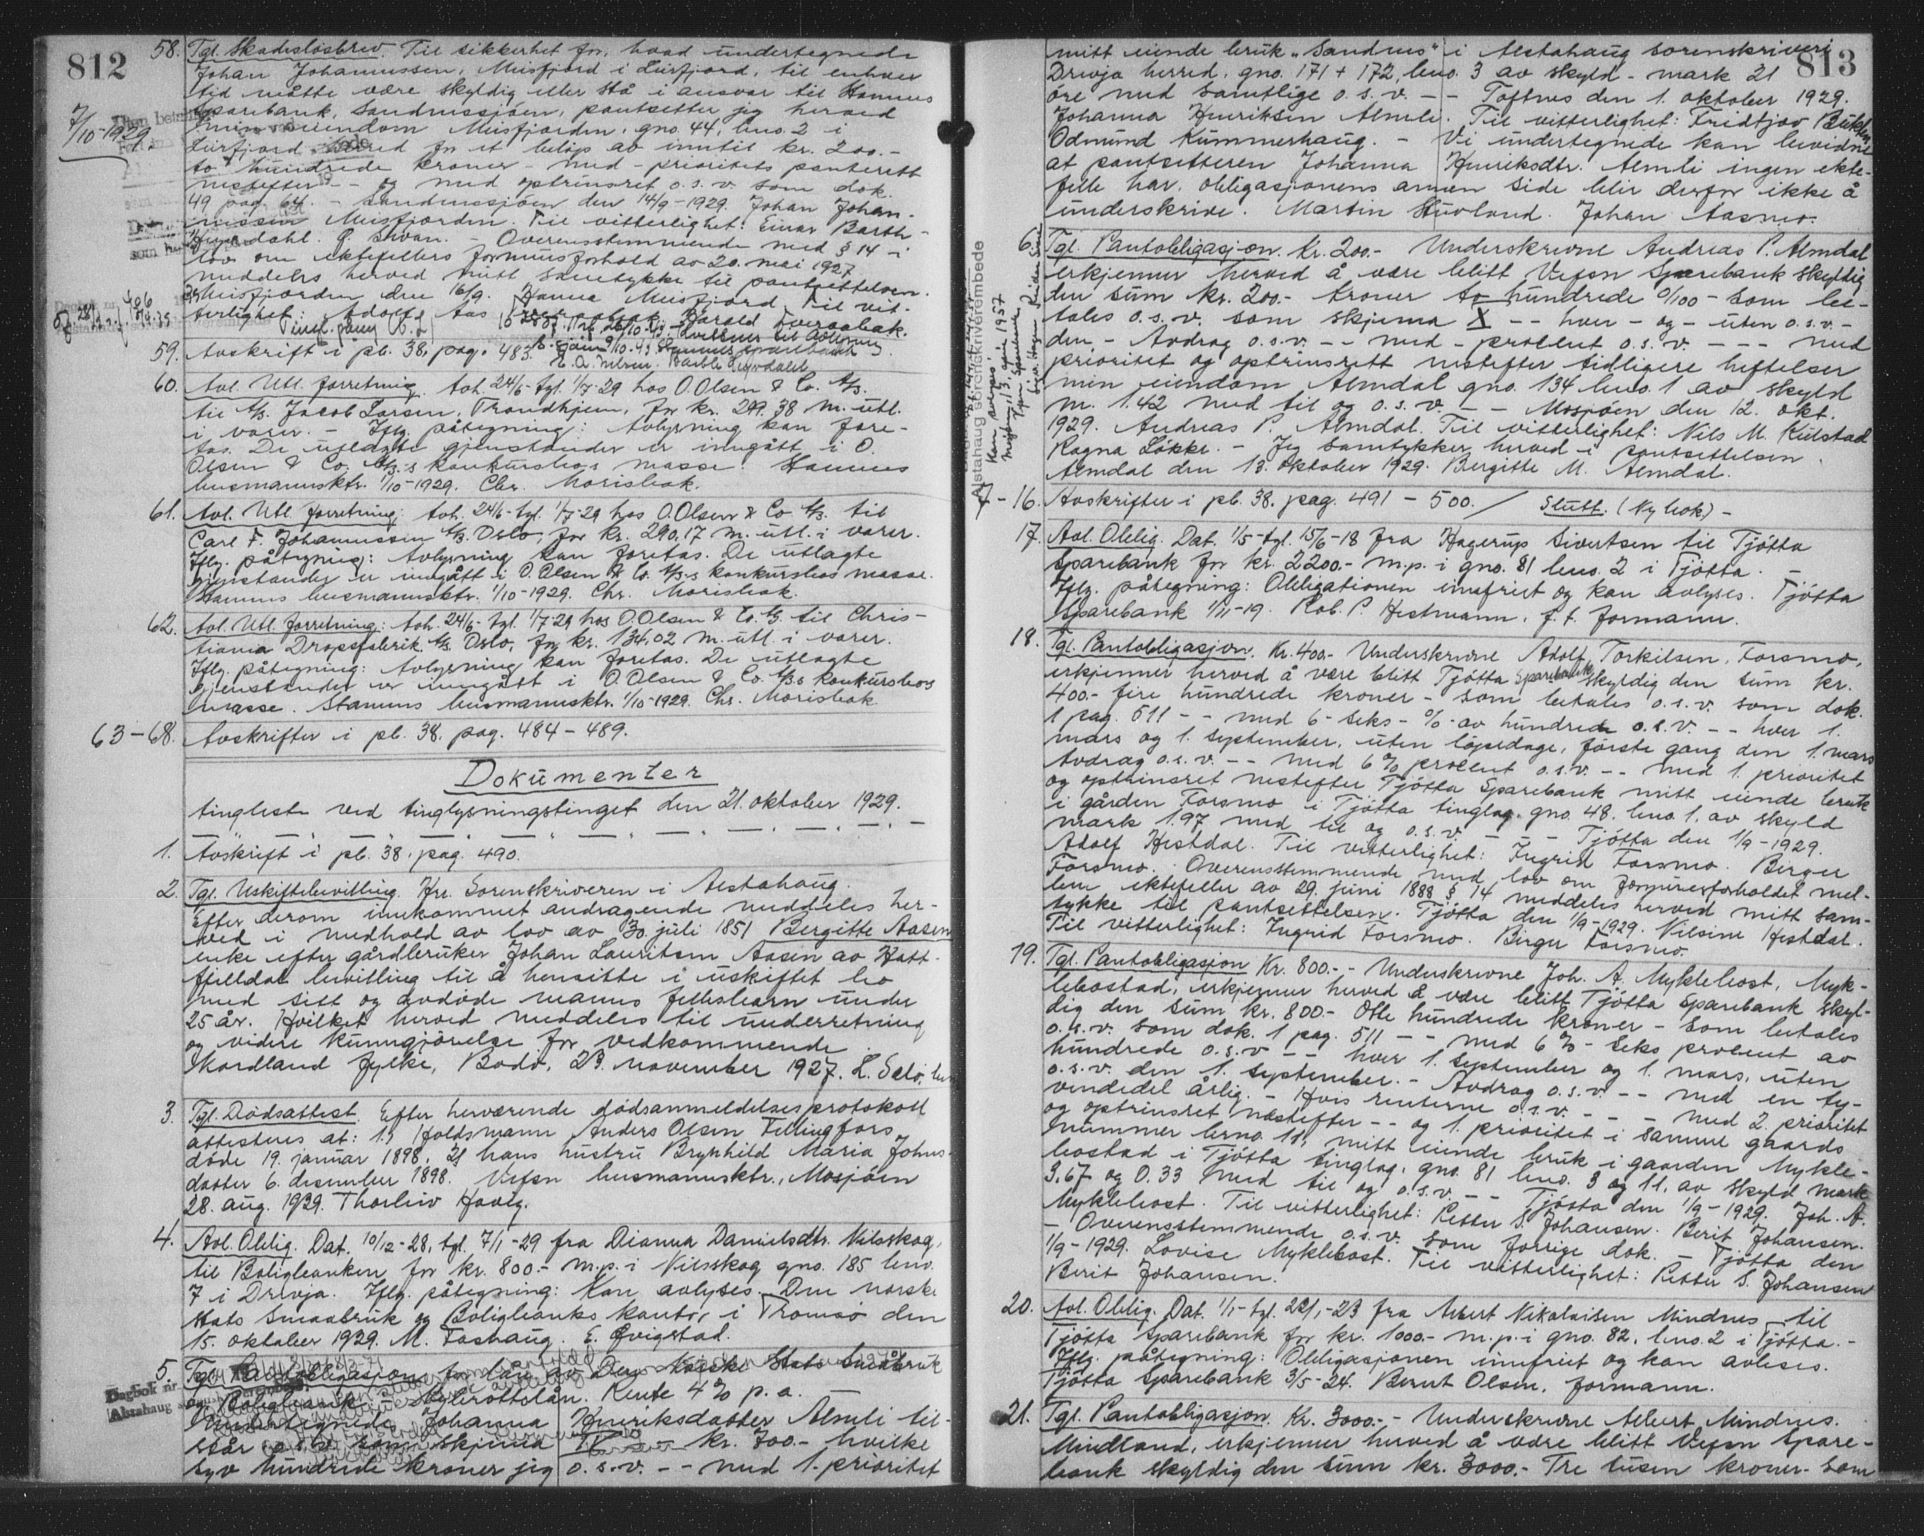 812
58. Tgl. Skadesløsbrev. Til sikkerhet for, hvad undertegnede
Johan Johannessen, Meisfjord i Leirfjord, til enhver
tid måtte være skyldig eller stå i ansvar til Stamnes
Sparebank, Sandnessjøen, pantsetter jeg herved
7/10-1929
min eiendom Meisfjorden, gno. 44, bno. 2 i
Leirfjord herred for et beløp av inntil kr. 200.-
to hundrede kroner - med - prioritets panterett
nestefter - - og med optrinsret o.s.v. som dok.
49 pag. 64. - Sandnessjøen den 14/9-1929. Johan Johan-
nessen Meisfjorden. Til vitterlighet: Einar Barth-
Heyerdahl. - Overensstemmende med § 14 i
lov om ektefellers formuesforhold av 20. mai 1927
meddeles herved mitt samtykke til pantsettelsen.
Meisfjorden den 16/9. Hanna Meisfjord. Til vit-
terlighet: Adolf Aas
59. Avskrift i pb. 38, pag. 483.
60. Avl. Utl. forretning avh. 24/6- tgl. 1/7-29 hos O. Olsen & Co. A/S.
til A/S. Jacob Larsen, Trondhjem, for kr. 38 m. utl.
i varer. - Iflg. påtegning: Avlysning kan fore-
tas. De utlagte gjenstander er inngått i O.
Olsen & Co. A/S.'s konkursbos masse. Stamnes
lensmannsktr. 1/10-1929. Chr. Morisbak.
61. Avl. Utl. forretning: avh. 24/6- tgl. 1/7-29 hos O. Olsen & Co A/S. til
Carl F. Johannessen A/S Oslo, for kr. 290,17 m. utl. i varer.
Iflg. påtegning: Avlysning kan foretas. De utlagte
gjenstander er inngått i O. Olsen & Co. A/S's konkursbos masse.
Stamnes lensmannsktr. 1/10-1929. Chr. Morisbak.
62. Avl. Utl. forretning: avh. 24/6- tgl. 1/7-29 hos O. Olsen & Co. A/S. til Chris-
tiania Dropsfabrik A/S Oslo, for kr. 134,02 m. utl. i varer.
Iflg. påtegning: Avlysning kan foretas. De utlagte
gjenstander er inngått i O Olsen & Co. A/S.s konkursbos
masse. Stamnes lensmannsktr. 1/10-1929. Chr. Morisbak
63-68. Avskrifter i pb. 38. pag. 484-489.
Dokumenter
tinglest ved tinglysningstinget den 21. oktober 1929.
1. Avskrift i pb. 38, pag. 490.
2. Tgl. Uskiftebevilling. Hr. Sorenskriveren i Alstahaug.
Efter derom innkommet andragende meddeles her-
ved i medhold av lov av 30. juli 1851 Bergitte Aasen
enke efter gårdbruker Johan Lauritsen Aasen av Hatt-
fjelldal bevilling til å hensitte i uskiftet bo
med sitt og avdøde manns fellesbarn under
25 år. Hvilket herved meddeles til underretning
og videre kunngjørelse for vedkommende.
Nordland fylke, Bodø, 23. november 1927.
3. Tgl. Dødsattest. Efter herværende dødsanmeldelsesprotokoll
attesteres at: 1) Anders Olsen Fellingfors
døde 19. januar 1898. 2) hans hustru Brynhild Maria Johns-
datter 6. desember 1898. Vefsn lensmannsktr., Mosjøen
28. aug. 1929. Thorleiv Haug.
4. Avl. Oblig. Dat. 10/12-28, tgl. 7/1-29 fra Dianna Danielsdtr. Nilsskog,
til Boligbanken for kr. 800.- m.p. i Nilsskog gno. 185 bno.
7 i Drevja. Iflg. påtegning: Kan avlyses. Den norske
stats Småbruk og Boligbanks kontor i Tromsø den
15. oktober 1929. M. Toshaug. E. Qvigstad.
5. Tgl. Pantobligasjon for lån av Den Norske Stats Småbruk
og Boligbank - Rente 4% p.a.
Undertegnede Johanna Henriksdatter Almli til-
står o.s.v. som skjema kr. 700.- hvilke
syv hundrede kroner jeg o.s.v. - - med 1. prioritet
Dagbok nr.
813
mitt eiende bruk „Sandnes" i Alstahaug sorenskriveri
Drevja herred, gno. 171 + 172, bno. 3 av skyld - mark 21
øre med samtlige o.s.v. - - Toftnes den 1. oktober 1929.
Johanna Henriksen Almli. Til vitterlighet: Fridtjov
Odmund Kummerhaug. - Vi undertegnede kan bevidne
at pantsetteren Johanna Henriksdtr. Almli ingen ekte-
felle har, obligasjonens annen side blir derfor ikke å
underskrive. Martin Stuvland. Johan Aasmo.
6. Tgl. Pantobligasjon. Kr. 200.- Underskrevne Andreas P. Almdal
erkjenner herved å være blitt Vefsn Sparebank skyldig
den sum kr. 200.- kroner to hundrede 0/100 - som be-
tales o.s.v. som skjema X - - hver - og - uten o.s.v. -
den - Avdrag o.s.v. - - med - procent o.s.v. - - - med
prioritet og optrinsrett nestefter tidligere heftelser
min eiendom Almdal gno. 134 bno. 1 av skyld
m. 1.42 med til og o.s.v. - - Mosjøen den 12. okt.
1929. Andreas P. Almdal. Til vitterlighet: Nils M. Kulstad
Ragna Løkke. - Jeg samtykker herved i pantsettelsen
Almdal den 13. oktober 1929. Bergitte M. Almdal.
Alstahaug sorenskriverembede
7-16. Avskrifter i pb. 38. pag. 491-500. / Slutt. (Ny bok) -
17. Avl. Oblig. Dat. 1/5- tgl. 15/6-18 fra Hagerup Sivertsen til Tjøtta
Sparebank for kr. 2200.- m.p. i gno. 81 bno. 2 i Tjøtta. -
Iflg. påtegning: Obligationen innfriet og kan avlyses. Tjøtta
Sparebank 1/11-19. Rob. P. Hestmann. f.t. formann.
18. Tgl. Pantobligasjon. Kr. 400.- Underskrevne Adolf Torkilsen, Forsmo,
erkjenner herved å være blitt Tjøtta Sparebank skyldig den sum kr.
400.- fire hundrede kroner - som betales o.s.v. som dok.
1 pag. 511 - - med 6 - seks - % av hundrede o.s.v. - - hver 1.
mars og 1. september, uten løpedage, første gang den 1. mars
Avdrag o.s.v. - - med 6% procent o.s.v. - - med 1. prioritet
og optrinsret nestefter Tjøtta Sparebank mitt eiende bruk
i gården Forsmo i Tjøtta tinglag, gno. 48, bno. 1, av skyld
mark 1.97 med til og o.s.v. - - - Tjøtta den 1/9-1929.
Adolf Hestdal. Til vitterlighet: Ingrid Forsmo. Birger
Forsmo. Overensstemmende med lov om formuesforholdet mel-
lem ektefeller av 29. juni 1888 § 14 meddeles herved mitt sam-
tykke til pantsettelsen. Tjøtta den 1/9-1929. Nilsine Hestdal.
Til vitterlighet: Ingrid Forsmo. Birger Forsmo.
19. Tgl. Pantobligasjon Kr. 800.- - Underskrevne Joh. A. Myklebost, Myk-
lebostad, erkjenner herved å være blitt Tjøtta Sparebank skyl-
dig den sum kr. 800.- Otte hundrede kroner - som betales
o.s.v. som dok. 1 pag. 511 - - med 6% - seks procent av
hundrede o.s.v - - hver 1. september og 1. mars, uten
o.s.v. den 1. september. - Avdrag o.s.v. - - med en ty-
vendedel årlig. - Hvis renterne o.s.v. - - - med 2. prioritet
og optrinsret næstefter - - og 1. prioritet i samme gaards
nummer brno. 11, mitt eiende bruk i gaarden Mykle-
bostad i Tjøtta tinglag, gno. 81 bno. 3 og 11, av skyld mark
3,67 og 0.33 med til og o.s.v. - - Tjøtta den 1/9-1929. Joh. A.
Myklebost. Til vitterlighet: Petter S. Johansen. Berit Johansen.
- Overensstemmende o.s.v. som forrige dok. - Tjøtta den
1/9-1929. Lovise Myklebost. Til vitterlighet: Petter S. Johansen
Berit Johansen.
20. Avl. Oblig. Dat. 1/1- tgl. 22/1-23 fra Albert Nikolaisen Mindnes til
Tjøtta Sparebank for kr. 1000.- m.p. i gno. 82, bno. 2 i Tjøtta. -
Iflg. påtegning: Obligasjonen innfriet og kan avleses.
Tjøtta Sparebank 3/5-24. Bernt Olsen, formann.
21. Tgl. Pantobligasjon. Kr. 3000.- - Underskrevne Albert Mindnes.
Mindland, erkjenner herved å være blitt Vefsn Spare-
bank skyldig den sum kr. 3000.- Tre tusen kroner - som